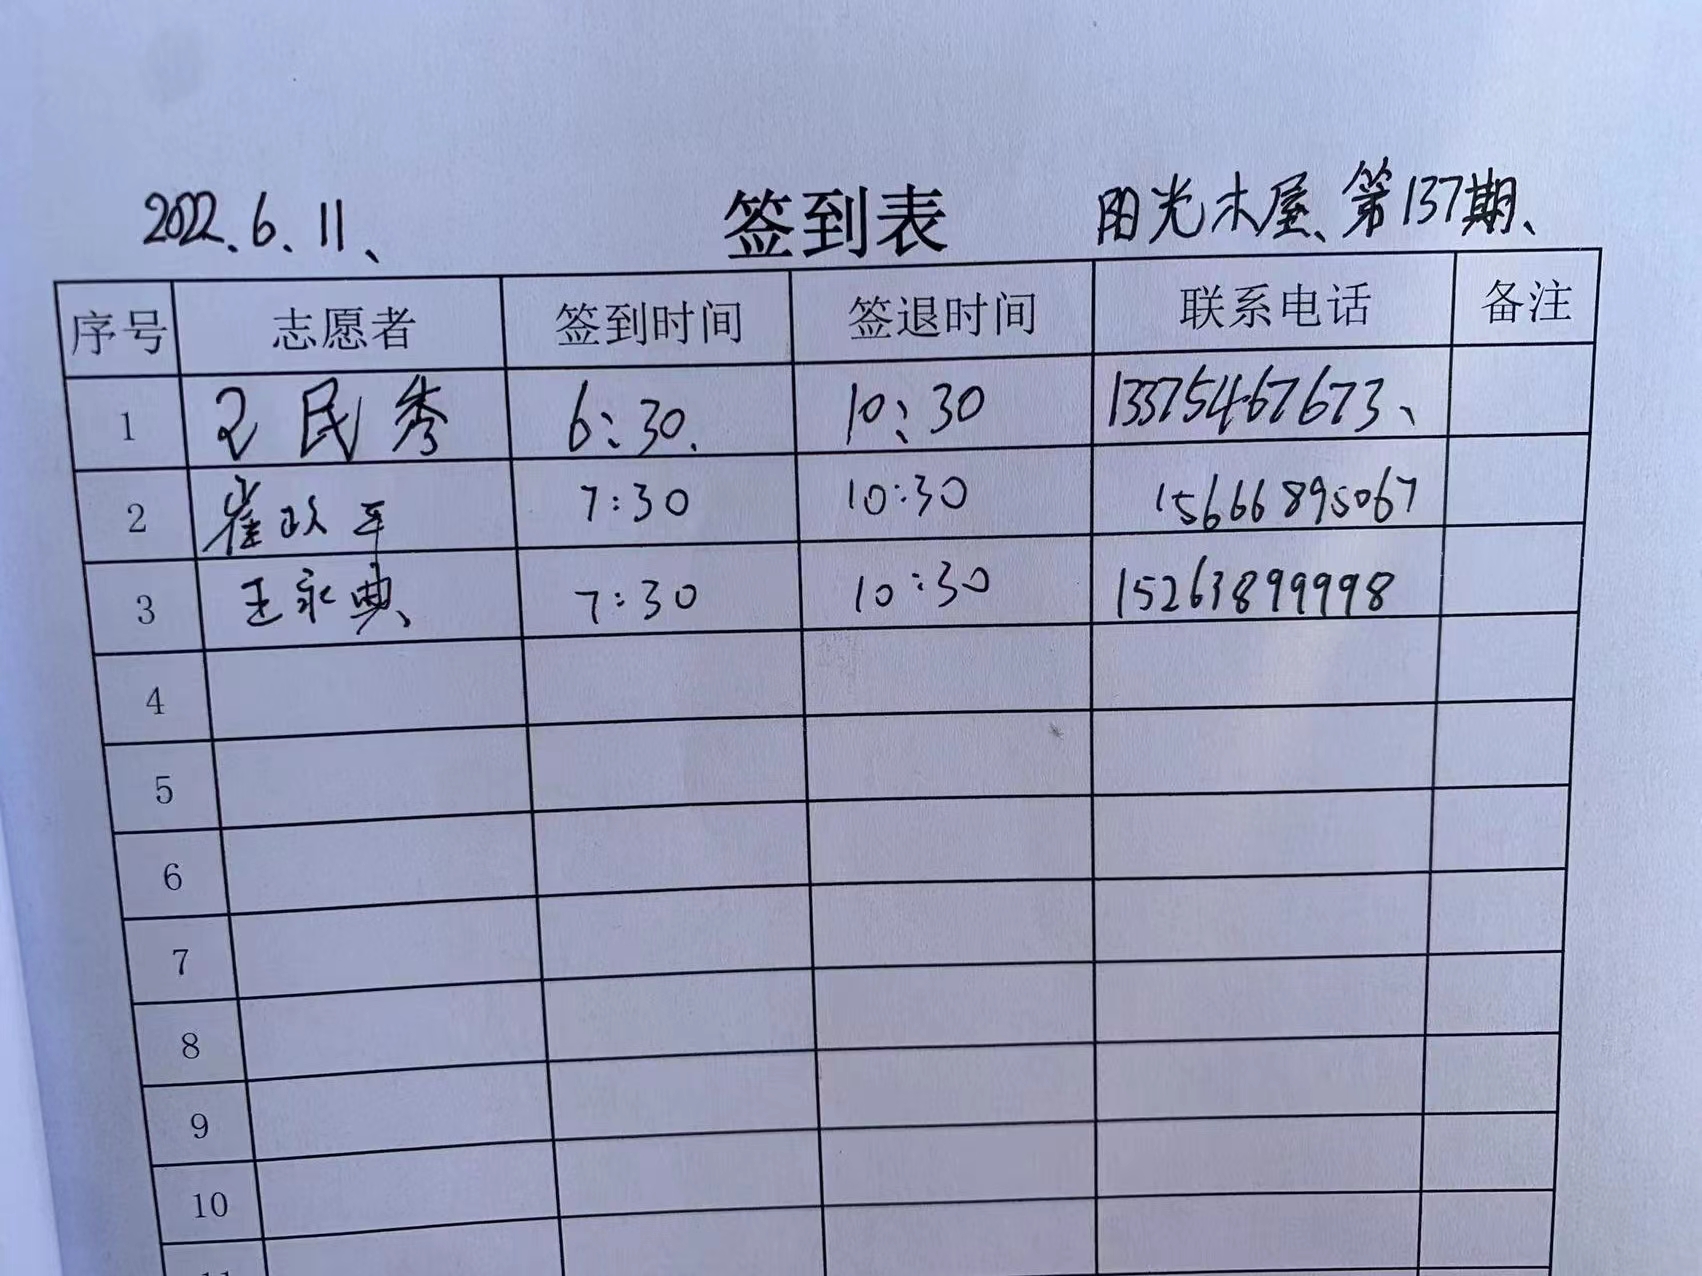 2022.6.11、 签到表 阳光木屋、第137期、
序号 志愿者 签到时间 签退时间 联系电话 备注
1 王民秀 6:30. 10:30 13375467673、
2 崔政平 7:30 10:30 15666895067
3 王永典 7:30 10:30 15263899998
4
5
6
7
8
9
10
11